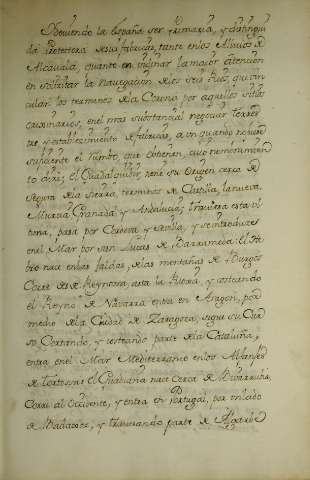 Deviendo la España ser primaria, y distingui
da Protettora de sus fabricas, tanto en los Alivios de
Alcavala, quanto en inclinar la maior atencion
en solicitar la navegacion de los seis Rios, que cir
culan los terminos de la Corona por aquellos sitios
ordinarios, en el mas substancial negociar Terres
tre, y establecimiento de fabricas, a un quando no sea
suficiente el rumbo, que obtienen, cuio nombramien
to dire; el Guadalquivir, tiene su Origen cerca de
Segura de la Sierra, terminos de Castilla, la nueva,
Murcia, Granada, y Andalucia; traviesa esta ul
tima, pasa por Cordova y Sevilla, y se introduce
en el Mar por San Lucas de Barrameda: El He
bro nace en las faldas, de las montañas de Burgos
Corre de Reynosa, asta la Rioxa, y costeando
el Reyno de Navarra entra en Aragon, por
medio de la Ciudad de Zaragoza, sigue su Cur
so Cortando, y costeando parte de la Cataluña,
entra en el Mar Mediterraneo en los Alfaques
de Tortosa: el Guadiana nace Cerca de
Corre al Occidente, y entra en Portugal, por un lado
de Badaxoz, y travesando parte de Algarbe